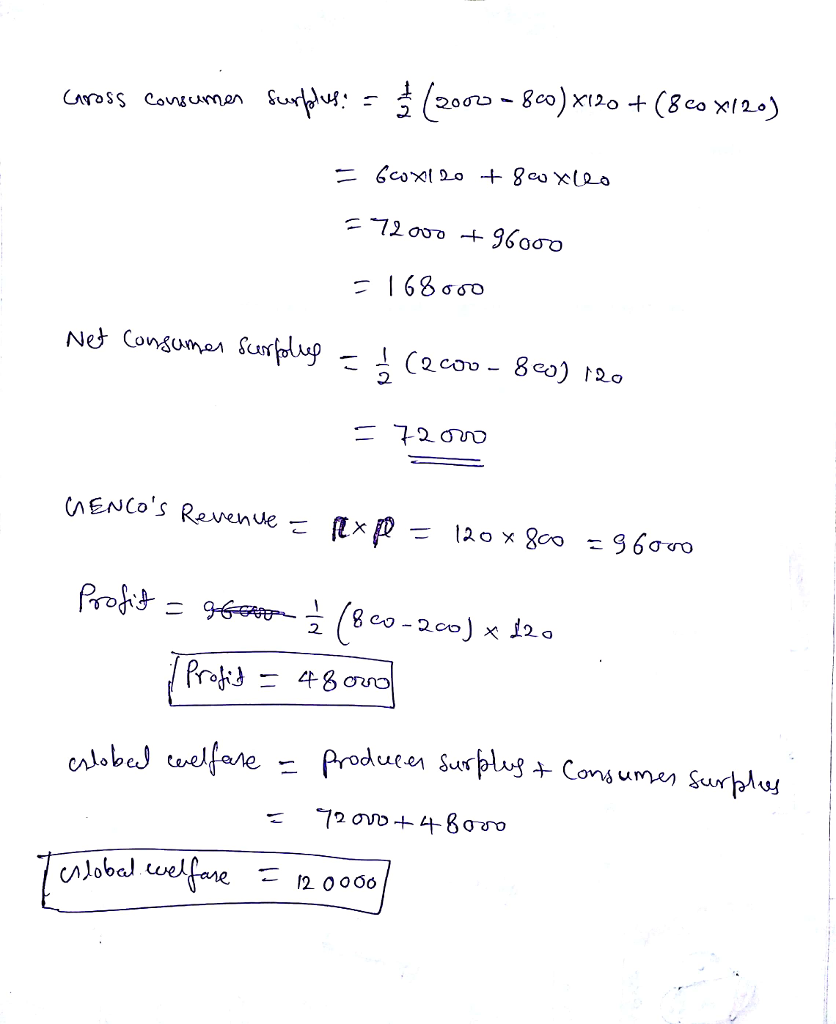 Gross Consumer Surplus: = 1/2 (2000 - 800) x120 + (800 x120)
= 600x120 + 800 x120
= 72000 + 96000
= 168000
Net Consumer Surplus = 1/2 (2000 - 800) 120
= 72000
GENCO's Revenue = π x P = 120 x 800 = 96000
Profit = 96000 1/2 (800-200) x 120
Profit = 48000
Global welfare = Producer Surplus + Consumer Surplus
= 72000 + 48000
Global welfare = 120000